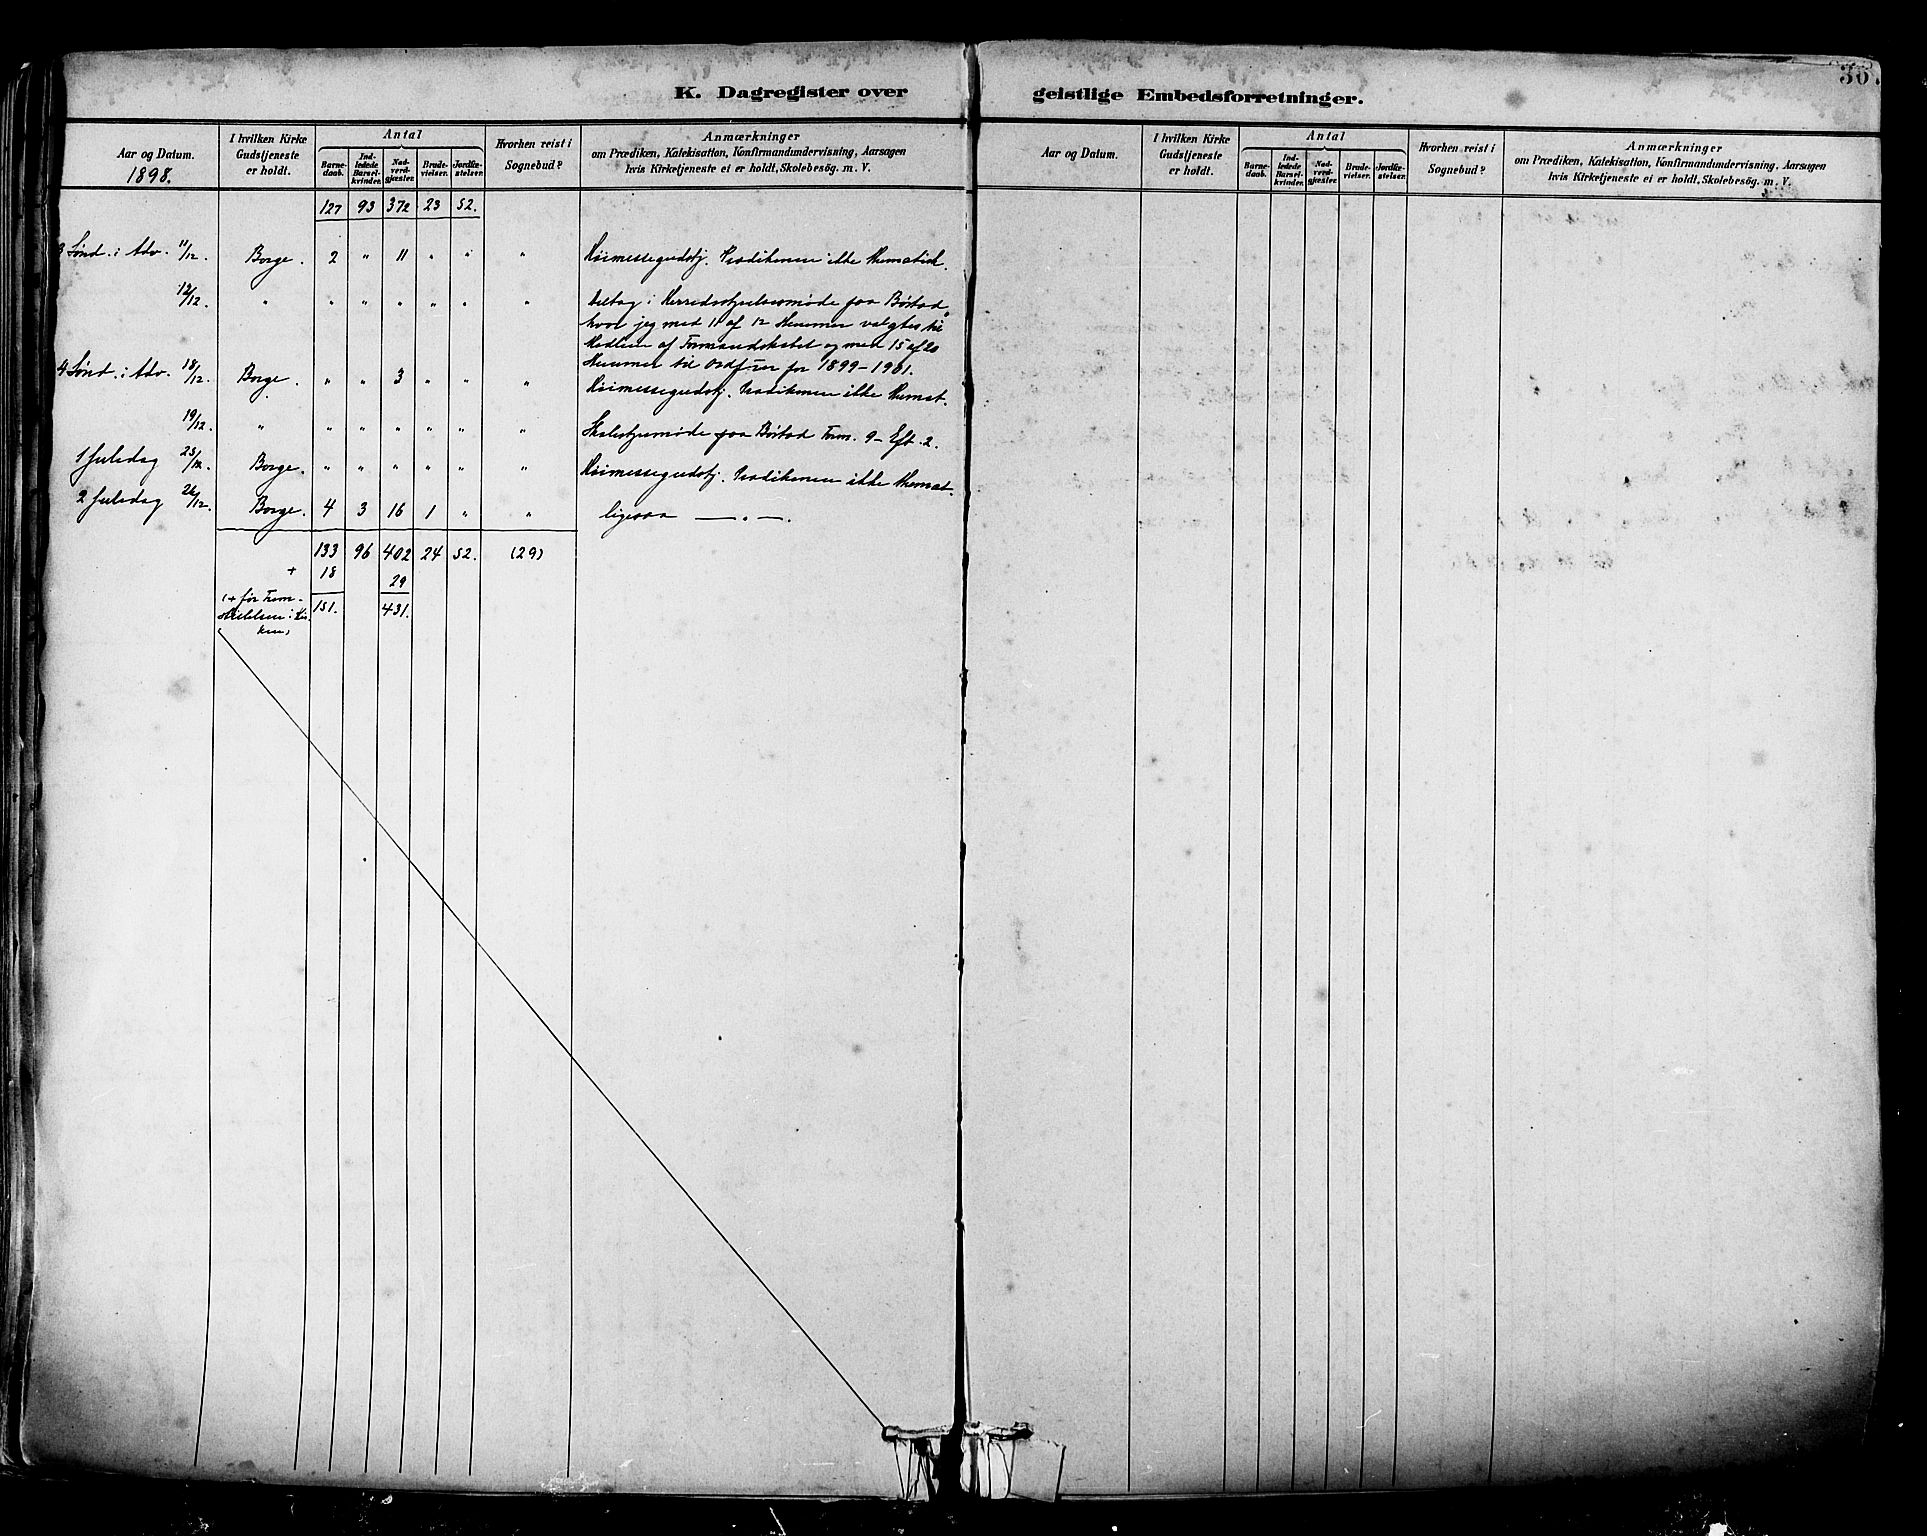 367
K. Dagregister over geistlige Embedsforretninger.
Aar og Datum.
1898.
I hvilken Kirke
Gudstjeneste
er holdt.
Antal
Barne-
daab.
Ind-
ledede
Barsel-
kvinder.
Nad-
verd-
gjæster.
Brude-
vielser.
Jordfæ-
stelser.
Hvorhen reist i
Sognebud?
Anmærkninger
om Prædiken, Katekisation, Konfirmandundervisning, Aarsagen
hvis Kirketjeneste ei er holdt, Skolebesøg. m. V.
127 93 372 23 52.
3 Sønd. i Adv. 11/12. Borge. 2 " 11 " " " Høimessegudstj. Prædikenen ikke thematisk.
12/12. " " " " " " " Deltog i Herredsstyrelsesmøde paa Børtad,
hvor jeg med 11 af 12 Stemmer valgtes til
Medlem af Formandskabet og med 15 af 20
Stemmer til Ordfører for 1899-1901.
4 Sønd. i Adv. 18/12. Borge. " " 3 " " " Høimessegudstj. Prædikenen ikke themat.
19/12. " " " " " " " Skolestyremøde paa Børtad Form. 9 - Eft. 2.
1 Juledag 25/12. Borge. " " " " " " Høimessegudstj. Prædikenen ikke themat.
2 Juledag 26/12. Borge. 4 3 16 1 " " ligesaa — " —.
133 96 402 24 52. (29)
+ 18 29
(+ før Frem-
stillelsen i Kir-
ken) 151. 431.
Aar og Datum.
I hvilken Kirke
Gudstjeneste
er holdt.
Antal
Barne-
daab.
Ind-
ledede
Barsel-
kvinder.
Nad-
verd-
gjæster.
Brude-
vielser.
Jordfæ-
stelser.
Hvorhen reist i
Sognebud?
Anmærkninger
om Prædiken, Katekisation, Konfirmandundervisning, Aarsagen
hvis Kirketjeneste ei er holdt, Skolebesøg. m. V.